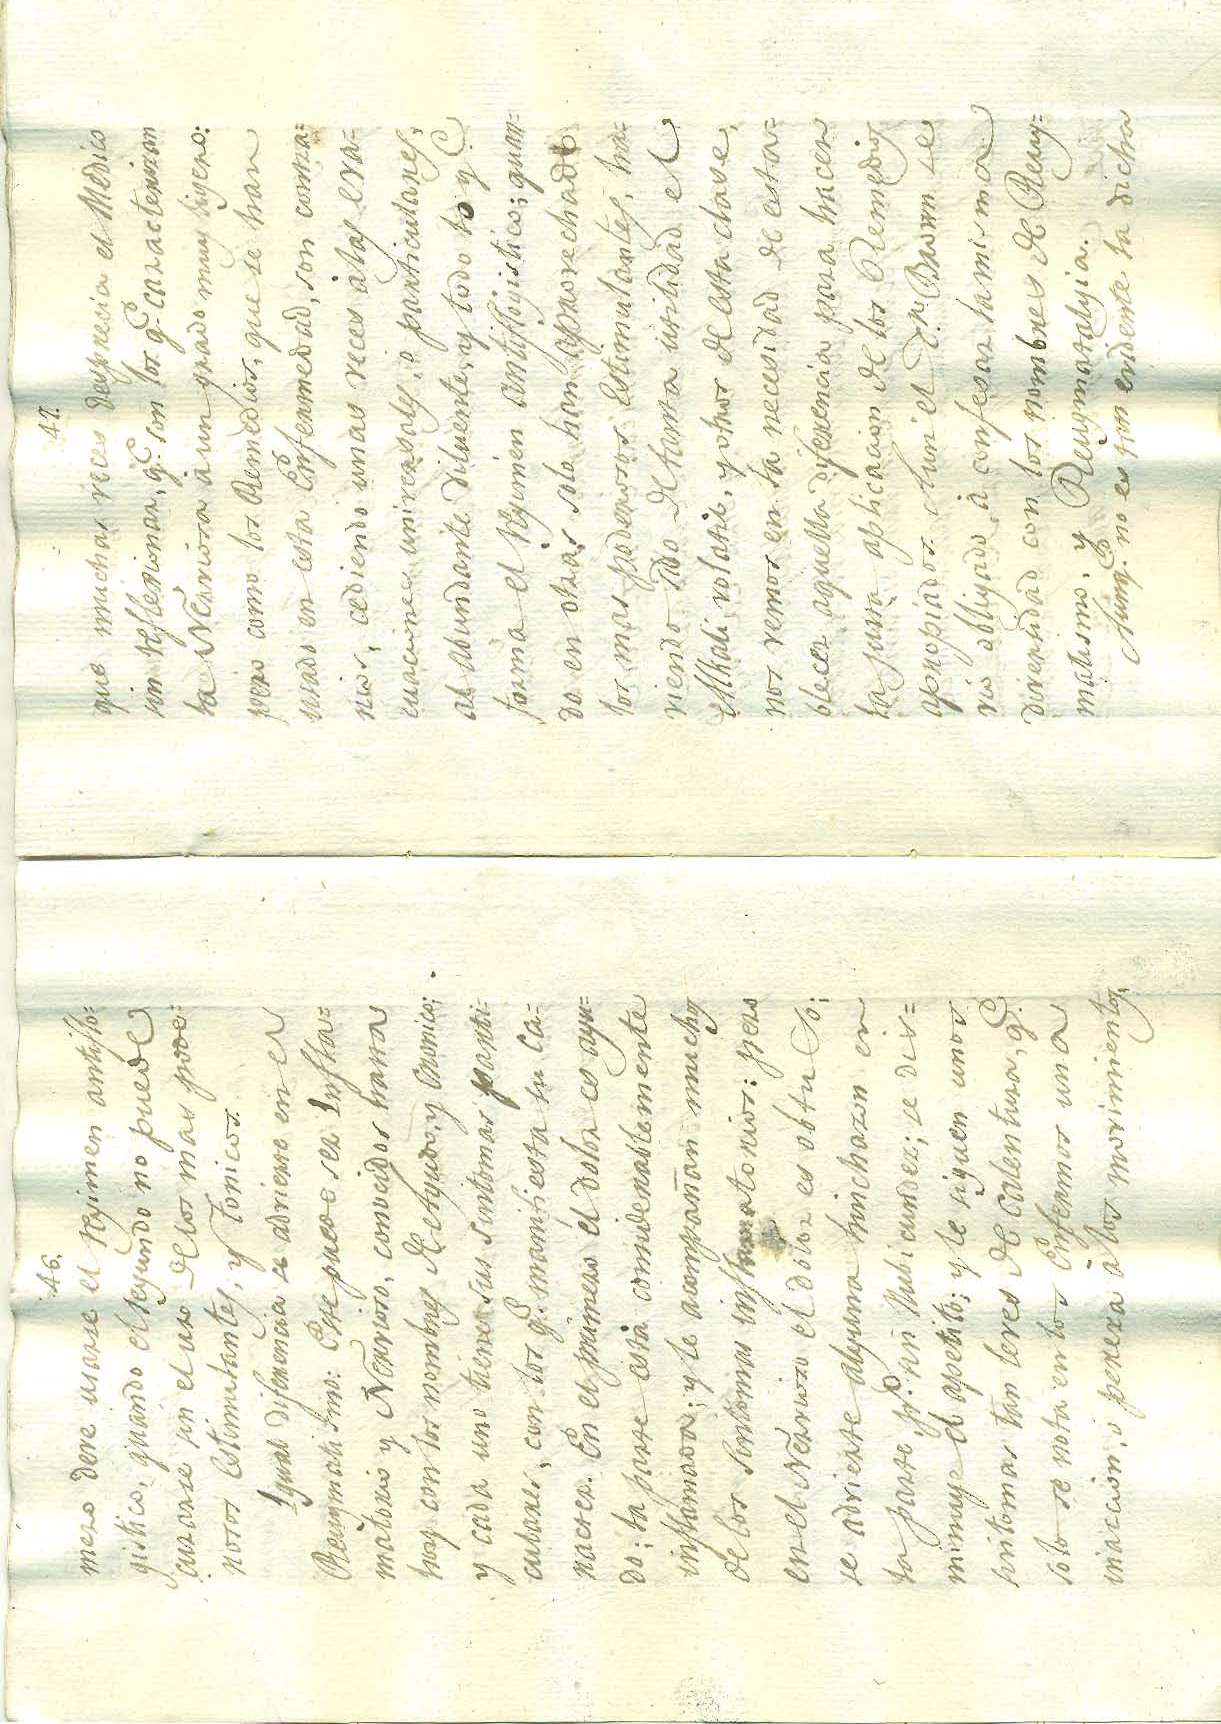 46.
mero deve usarse el Rejimen antiflo=
gistico, quando el segundo no puede
curarse sin el uso de los mas pode=
rosos Estimulantes, y Tonicos.
Igual diferencia se advierte en el
Reugmatismo: Este puede ser Infla=
matorio y Nervioso, conocidos hasta
hoy con los nombres de Agudo, y Cronico;
y cada uno tiene sus sintomas parti=
culares, con los q.e manifiesta su ca=
racter. En el primero el dolor es agu=
do; la parte está considerablemente
inflamada; y le acompañan muchos
de los sintomas inflamatorios: pero
en el Nervioso el dolor es obtuso;
se advierte alguna hinchazon en
la parte, p.o sin Rubicundez; se dis=
minuye el apetito; y le siguen unos
sintomas tan leves de Calentura, q.e
solo se nota en los Enfermos una
inaccion, ó pereza a los movimientos,
47.
que muchas veces desprecia el Medico
sin reflexionar, q.e son los q.e caracterizan
la Nerviosa á un grado muy ligero:
pero como los Remedios, que se han
usado en esta Enfermedad, son contra=
rios, cediendo unas veces á las eva=
cuaciones universales, o particulares,
al abundante diluente, y todo lo q.e
forma el Rejimen antiflogistico; quan=
do en otras solo han aprovechado
los mas poderosos Estimulantes, ha=
viendo sido de tanta utilidad el
Alkali volatil, y otros de esta clase,
nos vemos en la necesidad de esta=
blecer aquella diferencia para hacer
la justa aplicacion de los Remedios
apropiados. Aun el D.r Brown se
vió obligado á confesar la misma
diversidad con los nombres de Reug=
matismo, y Reugmatalgia.
Aunq.e no es tan evidente la dicha